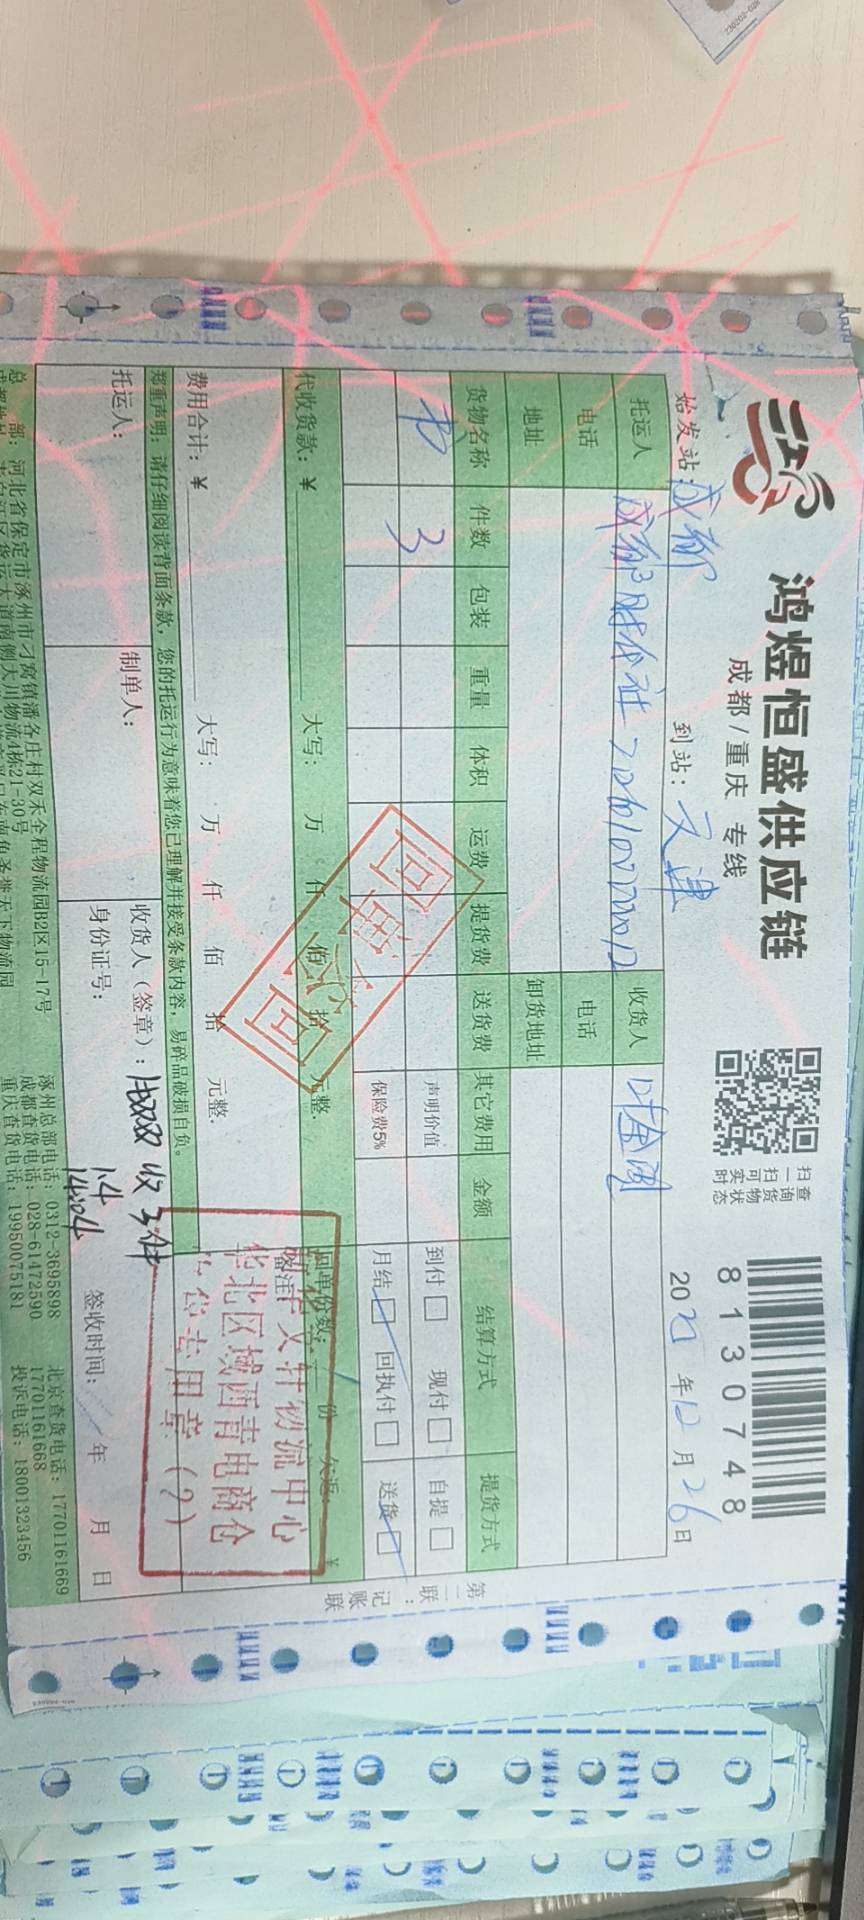 鸿煜恒盛供应链
成都/重庆 专线
扫一扫 查询货物实时状态
8130748
始发站：成都 到站：天津 12月26日
托运人 收货人
电话 电话
地址 卸货地址
货物名称 件数 包装 重量 体积 运费 提货费 送货费 其它费用 金额 结算方式 提货方式
书 3 声明价值 到付□ 现付□ 自提□
保险费5% 月结□ 回执付□ 送货□
代收货款：￥ 大写： 万 仟 佰 拾 元整. 回单份数： 份
费用合计：￥ 大写： 万 仟 佰 拾 元整. 备注
郑重声明：请仔细阅读背面条款，您的托运行为意味着您已理解并接受条款内容，易碎品破损自负。
托运人： 制单人： 收货人（签章）： 收3件
身份证号： 1.4 签收时间： 年 月 日
总 部：河北省保定市涿州市刁窝镇潘各庄村双禾全程物流园B2区15-17号 涿州总部电话：0312-3695898 北京查货电话：17701161669
成都查货电话：028-61472590 17701161668
重庆查货电话：19950075181 投诉电话：18001323456
第二联：记账联
文轩物流中心
华北区域西青电商仓
专用章(2)